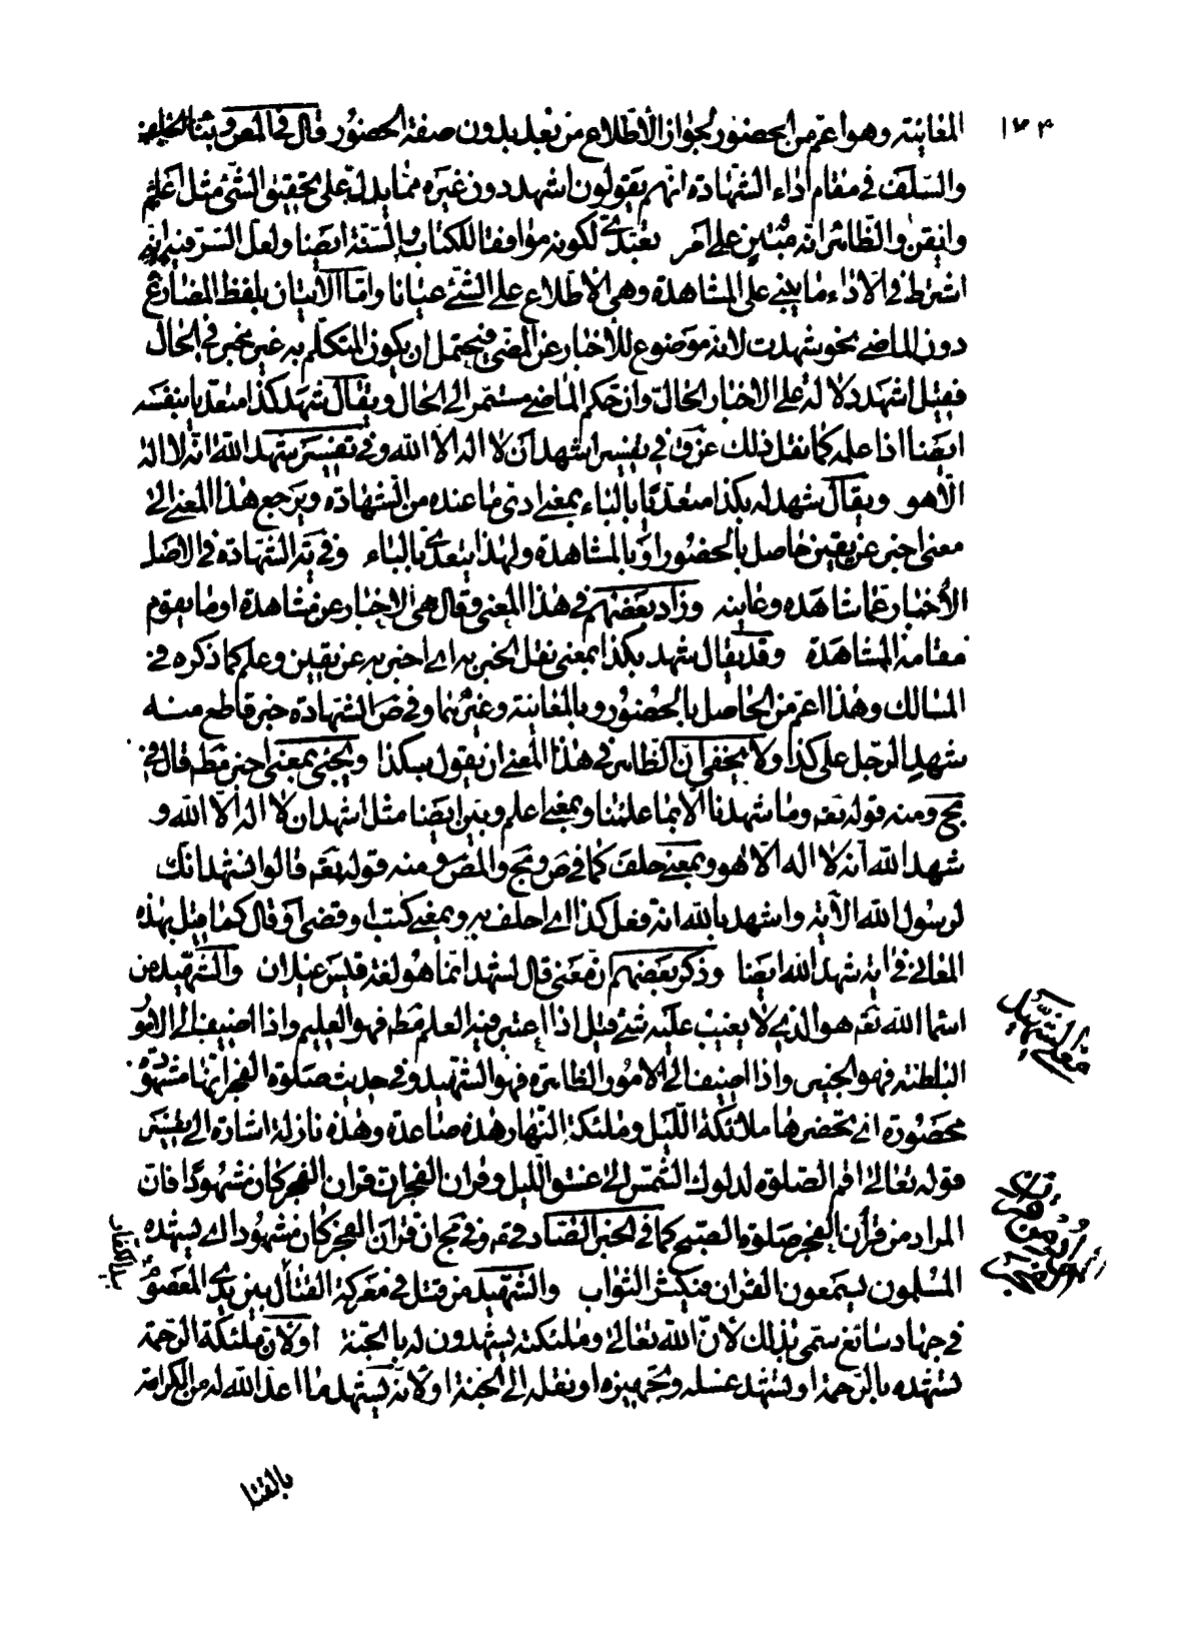 ١٧٤
المعاينة وهو اعم من الحضور لجواز الاطلاع من بعد بدون صفة الحضور قال في المعروف بثنا الخلف
والسلف في مقام اداء الشهادة انهم يقولون اشهد دون غيره مما يدل على تحقيق الشئ مثل اعلم
وايقن والظاهر انه مبتين على امر تعبدي لكونه موافقا للكتاب والسنة ايضا ولعل السر فيه انه
اشترط في الاداء ما يبنى على المشاهدة وهي الاطلاع على الشئ عيانا واما الاتيان بلفظ المضارع
دون الماضي نحو شهدت لانه موضوع للاخبار عن المضي فيحتمل ان يكون المتكلم به غير مخبر في الحال
فقيل اشهد دلالة على الاخبار الحال وان حكم الماضي مستمر الى الحال ويقال شهد كذا متعديا بنفسه
ايضا اذا علمه كما نقل ذلك عن ق في تفسير اشهد ان لا اله الا الله وفي تفسير شهد الله انه لا اله
الا هو ويقال شهد له بكذا متعديا بالباء بمعنى ادى ما عنده من الشهادة ويرجع هذا المعنى الى
معنى اخبر عن يقين حاصل بالحضور او بالمشاهدة ولهذا يتعدى بالباء وفي ية الشهادة في الاصل
الأخبار عما شاهده وعاينه وزاد بعضهم في هذا المعنى وقال هي الاخبار عن مشاهدة او ما يقوم
مقامه المشاهدة وقد يقال شهد بكذا بمعنى نقل الخبر به اي اخبر به عن يقين وعلم كما ذكره في
المسالك وهذا اعم من الحاصل بالحضور وبالمعاينة وغيرهما وفي ص الشهادة خبر قاطع منه
شهد الرجل على كذا ولا يخفى ان الظاهر في هذا المعنى ان يقول بكذا ويجئ بمعنى اخبر مطه قال في
مج ومنه قوله تعه وما شهدنا الا بما علمنا وبمعنى علم وبين ايضا مثل اشهد ان لا اله الا الله و
شهد الله انه لا اله الا هو وبمعنى حلف كما في ص ومج والمص ومنه قوله تعه قالوا نشهد انك
لرسول الله الآية واشهد بالله انه فعل كذا اي احلف به وبمعنى كتب او قضى او قال كما قيل بهذه
المعاني في اية شهد الله ايضا وذكر بعضهم ان معنى قال لشهد انما هو لغة قيس عيلان والشهيد من
اسماء الله تعه هو الذي لا يغيب عليه شئ قيل اذا اعتبر فيه العلم مطه فهو العليم واذا اضيف الى الامور
الباطنة فهو الخبير واذا اضيف الى الامور الظاهرة فهو الشهيد وفي حديث صلوة الفجر انها مشهودة
محضورة اي يحضرها ملائكة الليل وملئكة النهار هذه صاعدة وهذه نازلة اشارة الى تفسير
قوله تعالى اقم الصلوة لدلوك الشمس الى غسق الليل وقران الفجر ان قران الفجر كان مشهودا فان
المراد من قرآن الفجر صلوة الصبح كما في الخبر الصاد في عه وفي مج ان قران الفجر كان مشهودا اي يشهده
المسلمون ليسمعون القران فيكثر الثواب والشهيد من قتل في معركة القتال بين يدي المعصوم
في جهاد سائغ سمى بذلك لان الله تعالى وملئكته يشهدون له بالجنة او لان ملئكة الرحمة
تشهده بالرحمة او يشهد غسله وتجهيزه او نقله الى الجنة او لانه يشهد ما اعد الله له من الكرامة
معنى الشهيد
بالقتل